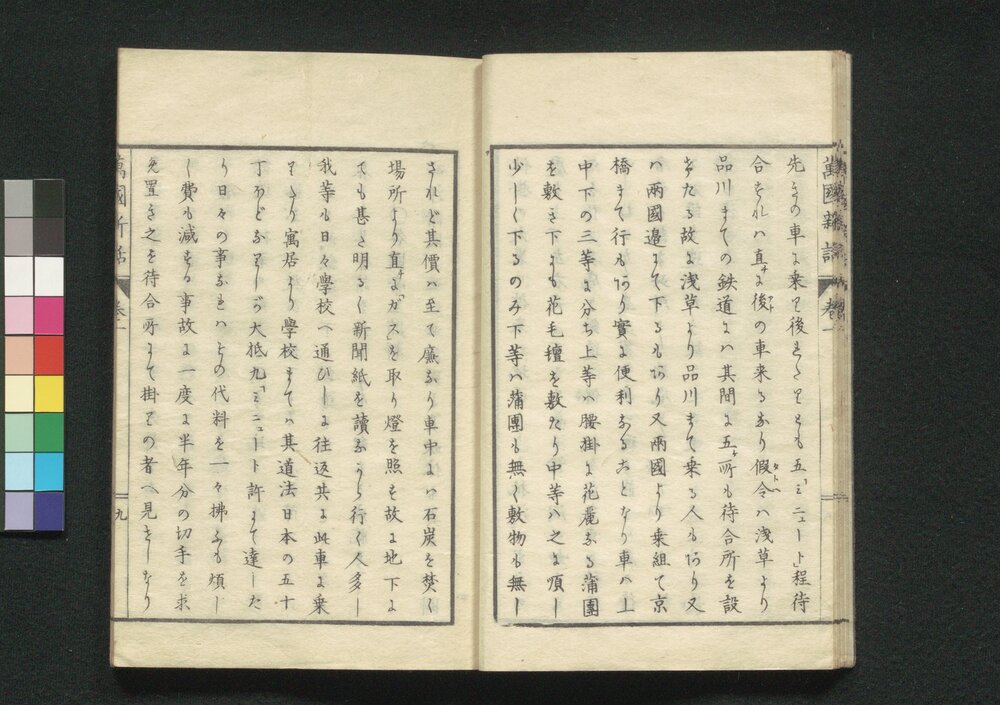 萬國新話 巻一
先きの車に乗り後るゝとも五「ミニュート」程待
合すれハ直に後の車来るなり假令ハ浅草より
品川まての鉄道にハ其間に五ヶ所も待合所を設
けたる故に浅草より品川まて乗る人もあり又
ハ兩國邉にて下るもあり又兩國より乗組て京
橋まて行もあり實に便利なることなり車ハ上
中下の三等に分ち上等ハ腰掛に花麗なる蒲團
を敷き下にも花毛氊を敷たり中等ハ之に順し
少しく下るのみ下等ハ蒲團も無く敷物も無し
されど其價ハ至て廉なり車中にハ石炭を焚く
場所より直に「ガス」を取り燈を照す故に地下に
ても甚た明るく新聞紙を讀なから行く人多し
我等も日々學校へ通ひしに往返共に此車に乗
りたり寓居より學校まてハ其道法日本の五十
丁ほどなりしが大抵九「ミニュート」許にて達した
り日々の事なれハその代料を一々拂ふも煩し
く費も減する事故に一度に半年分の切手を求
め置き之を待合所にて掛りの者へ見せしなり
萬國新話 巻一
九